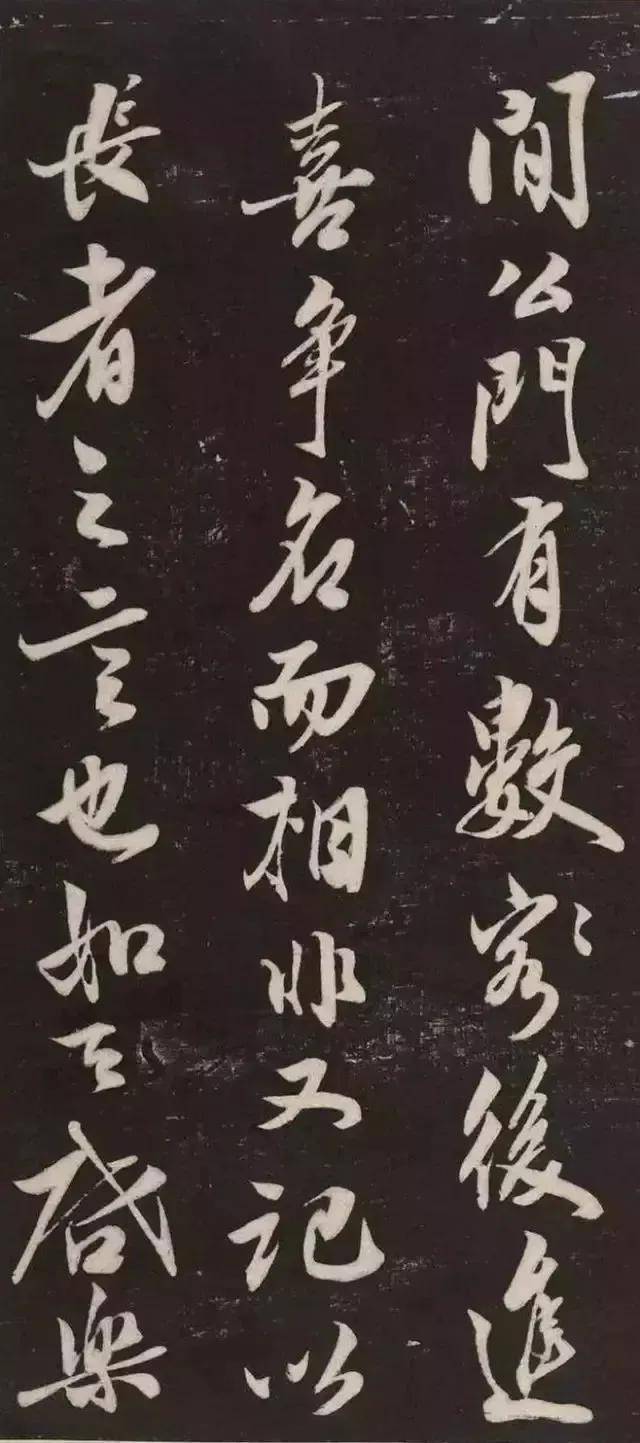 閒公門有數客〻後進
喜爭名而相非又記以
長者之言也如云啓樂